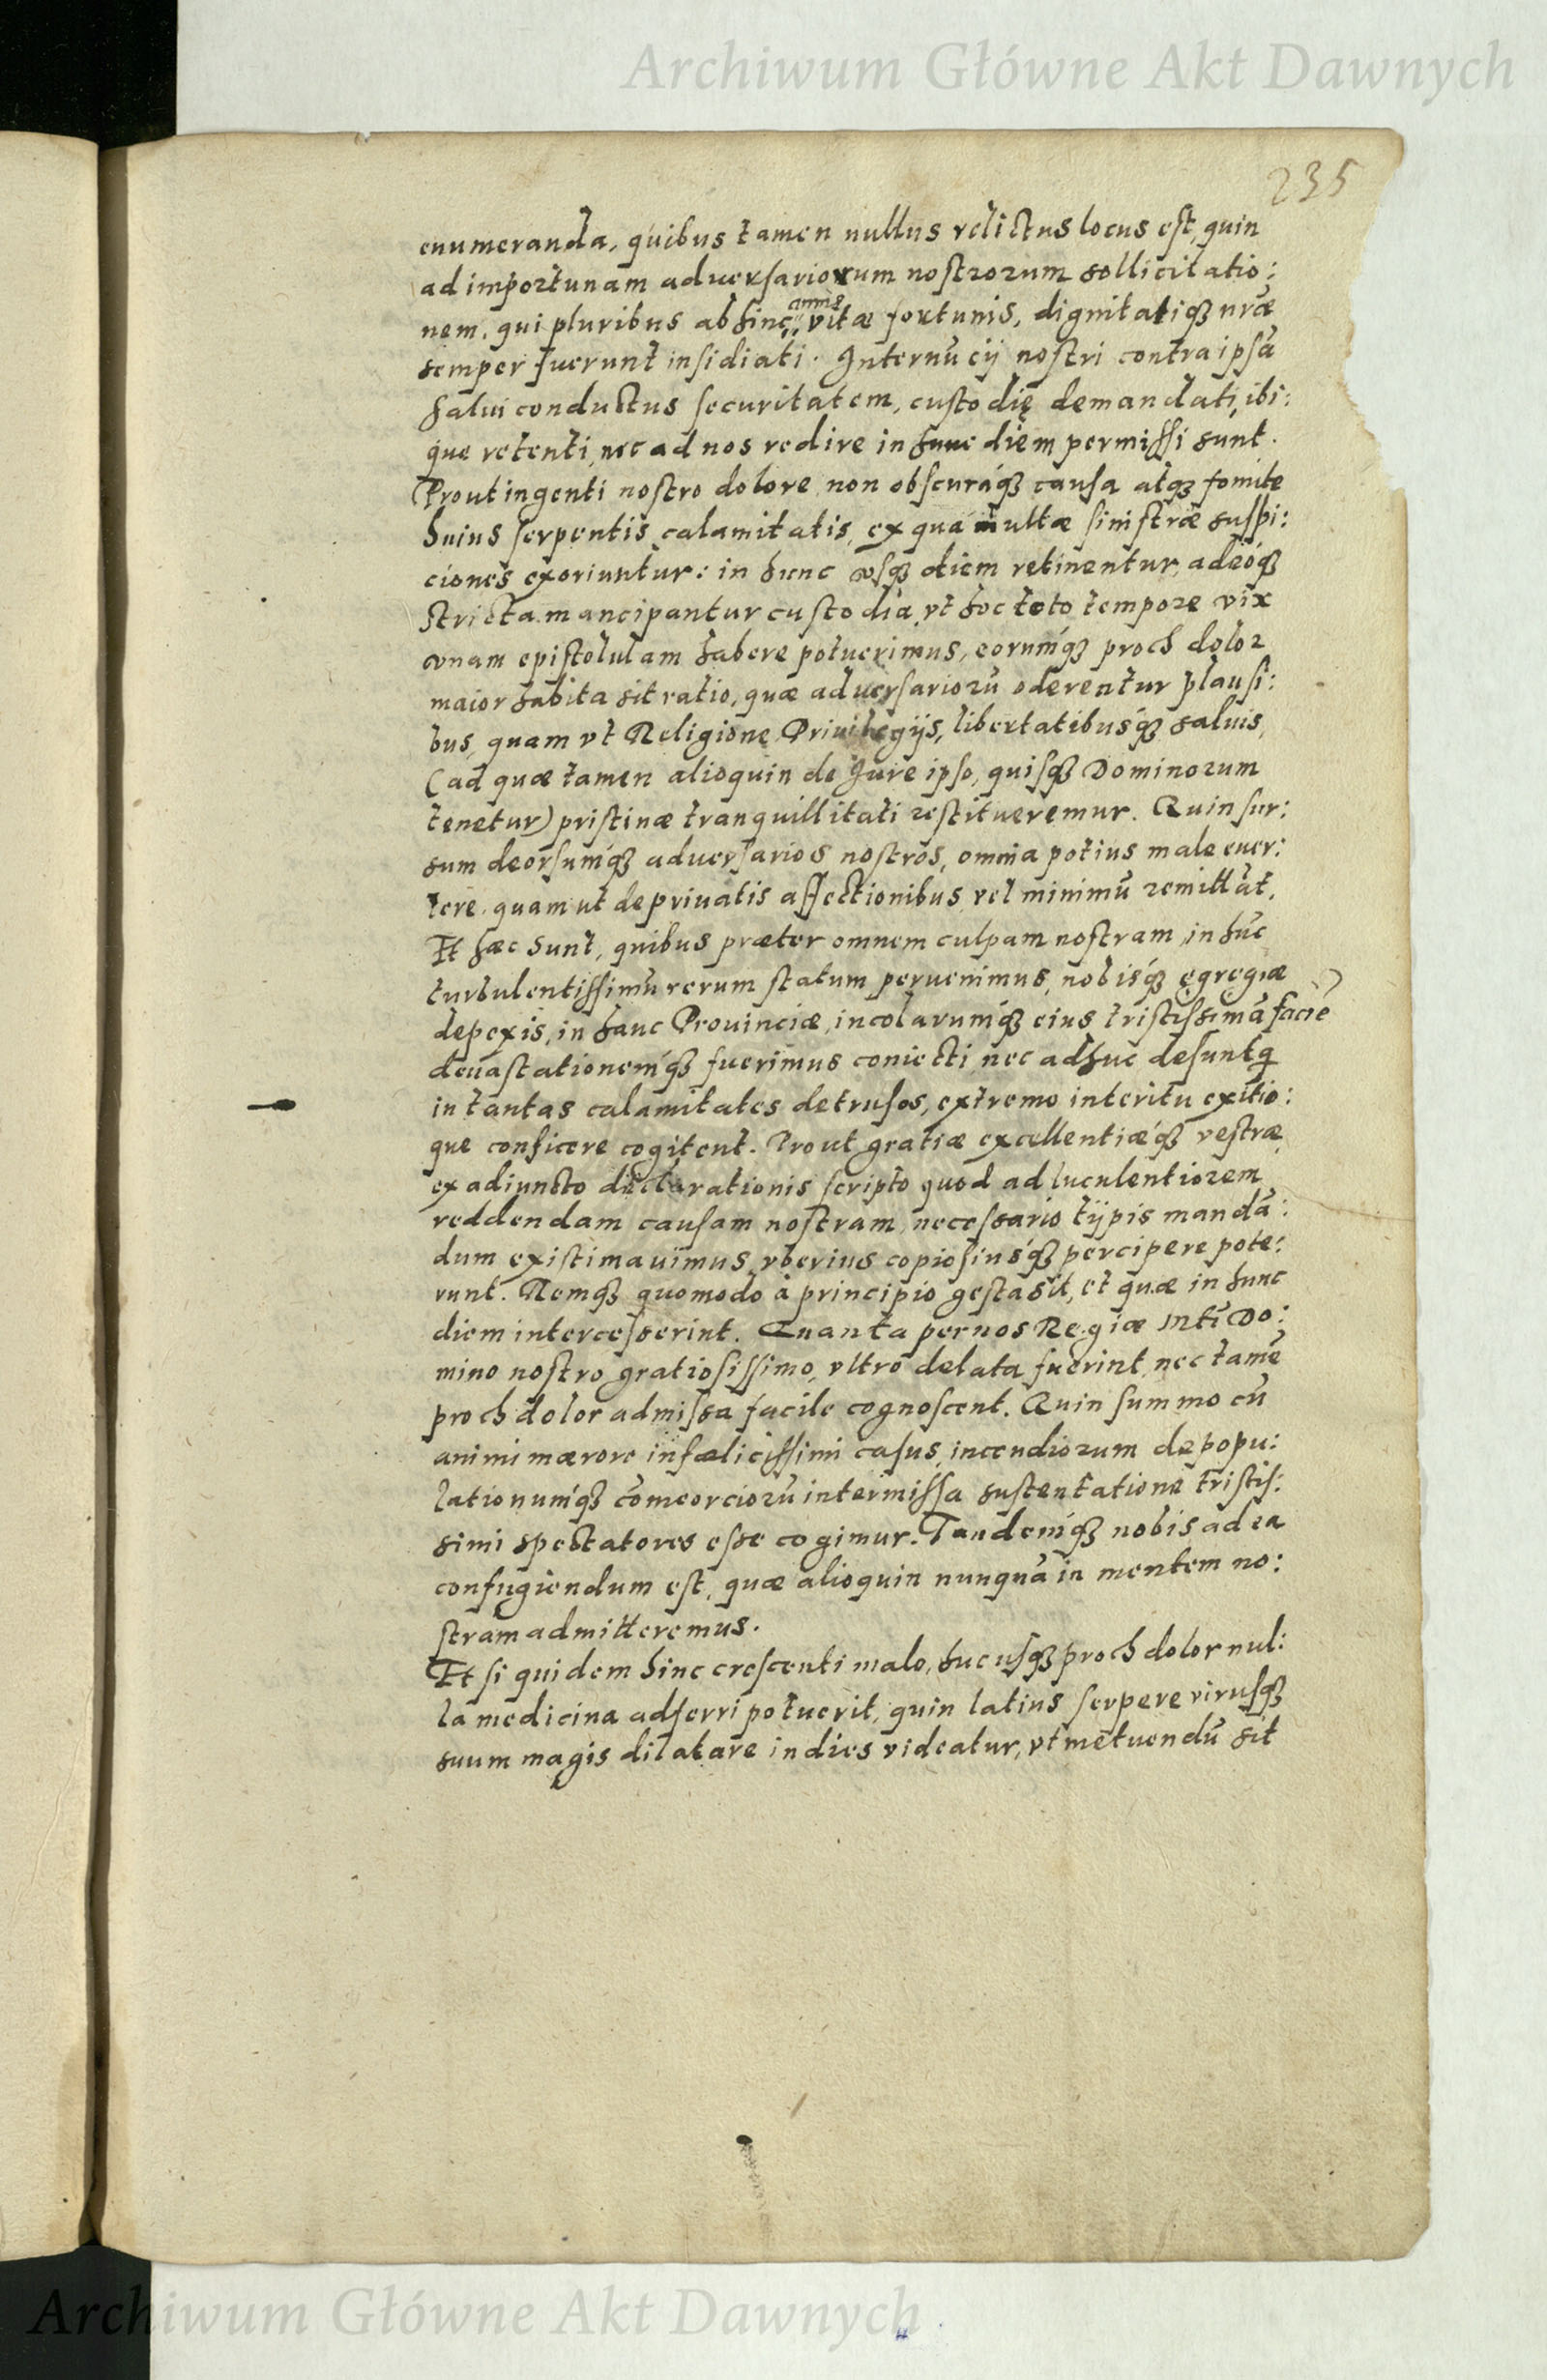 Archiwum Główne Akt Dawnych
235
enumeranda, quibus tamen nullus relictus locus est, quin
ad importunam aduersariorum nostrorum sollicitatio:
nem, qui pluribus abhinc annis vitæ fortunis, dignitatiq3 nr̃æ
semper fuerunt insidiati. Internũcij nostri contra ipsã
salui conductus securitatem, custodię demandati, ibi:
que retenti, nec ad nos redire in hunc diem permissi sunt.
Prout ingenti nostro dolore, non obscuráq3 causa atq3 fomite
huius serpentis calamitatis, ex qua multæ sinistræ suspi:
ciones exoriuntur: in hunc vsq3 diem retinentur, adeóq3
stricta mancipantur custodia, vt hoc toto tempore vix
vnam epistolulam habere potuerimus, eorumq́3 proch dolor
maior habita sit ratio, quæ aduersariorũ oderentur plausi:
bus, quam vt Religione, Priuilegijs, libertatibusq́3 saluis,
(ad quæ tamen alioquin de Jure ipso, quisq3 Dominorum
tenetur) pristinæ tranquillitati restitueremur. Quin sur:
sum deorsumq́3 aduersarios nostros, omnia potius male euer:
tere, quam ut de priuatis affectionibus vel minimũ remittãt.
Et hæc sunt, quibus præter omnem culpam nostram, in hũc
turbulentissimũ rerum statum peruenimus, nobisq́3 egregiæ
depexis, in hanc Prouinciæ, incolarumq́3 eius tristissimã faciẽ
deuastationemq́3 fuerimus coniecti, nec adhuc desunt q̃
in tantas calamitates detrusos, extremo interitu exitio:
que conficere cogitent. Prout gratiæ excellentiæq́3 vestræ,
ex adiuncto declarationis scripto quod ad luculentiorem
reddendam causam nostram, necessario tijpis mandã:
dum existimauimus, vberius copiosiusq́3 percipere pote:
runt. Nemq3 quomodo à principio gesta sit, et quæ in hunc
diem intercesserint. Quanta per nos Regiæ Mtĩ Do:
mino nostro gratiosissimo, vltro delata fuerint, nec tamẽ
proch dolor admissa facile cognoscent. Quin summo cũ
animi mærore infælicissimi casus, incendiorum depopu:
lationumq́3 cõmeorciorũ intermissa sustentatione tristis:
simi spectatores esse cogimur. Tandemq́3 nobis ad ea
confugiendum est, quæ alioquin nunquã in mentem no:
stram admitteremus.
Et si quidem hinc crescenti malo, hucusq3 proch dolor nul:
la medicina adferri potuerit, quin latius serpere virusq3
suum magis dilatare in dies videatur, vt metuendũ sit
Archiwum Główne Akt Dawnych